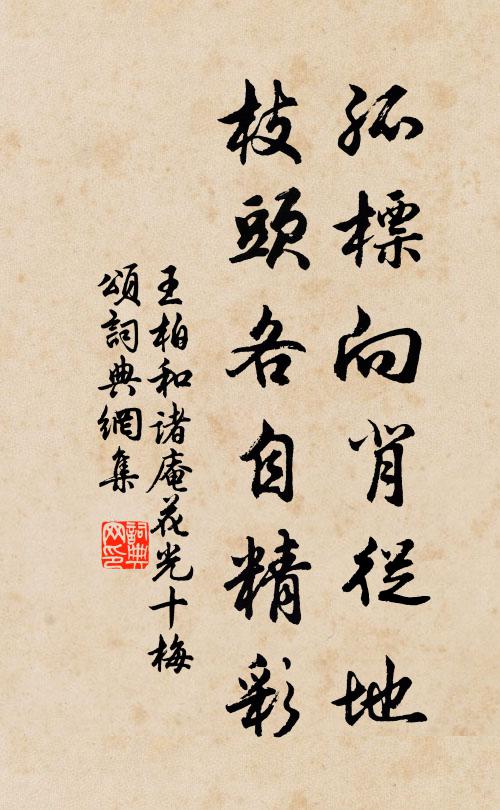 孤標向背從地
枝頭各自精彩
王柏和諸庵花光十梅
頌詞典網集
詞典網印